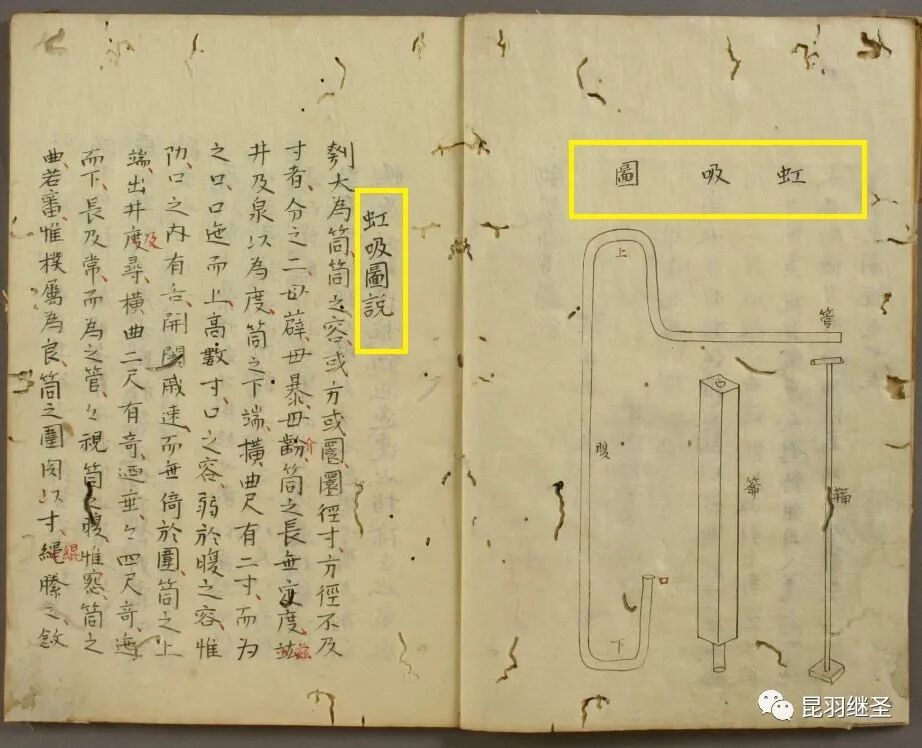 虹吸圖
上
管
腹
筩
鞴
口
下
虹吸圖說
刳大為筒筒之容或方或圜圜徑寸方徑不及
寸者分之二毋薜毋暴毋齘筒之長無定度竑
介
茲
井及泉以為度筒之下端橫曲尺有二寸而為
之口口迤而上高數寸口之容弱於腹之容惟
扐口之內有舌開闔戚速而無倚於圍筒之上
端出井度尋橫曲二尺有奇迺垂々四尺奇迤
及
而下長及常而為之管々視筒之腹惟窓筒之
曲若審惟樸屬為良筒之圍以寸繩縢之斂
緄
昆羽继圣